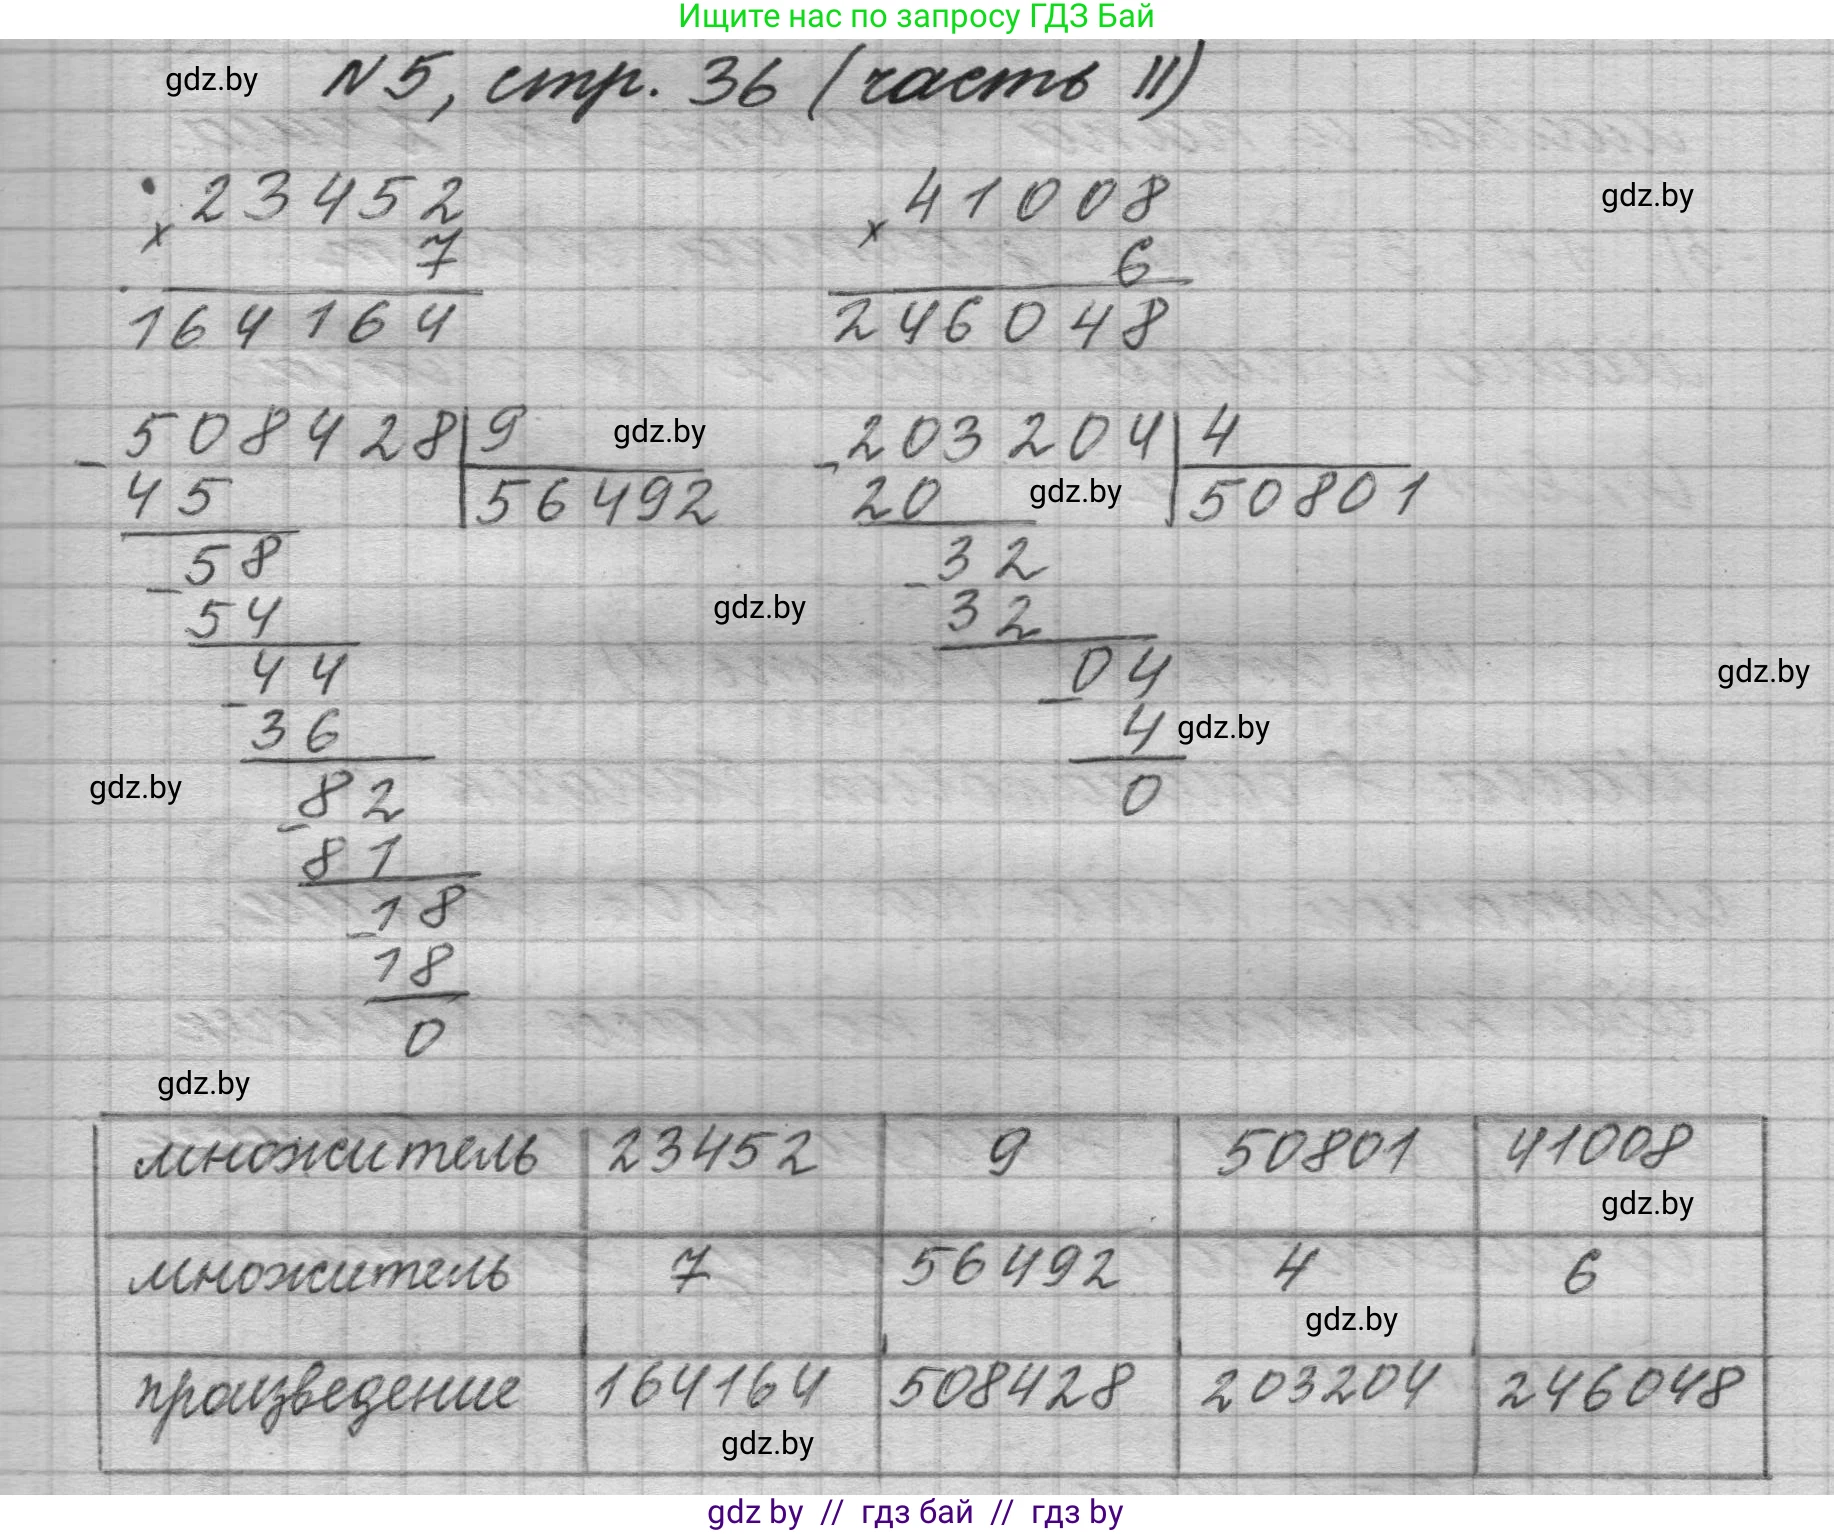 Ищите нас по запросу ГДЗ Бай
gdz.by N5, стр. 36 (часть II)
23452 41008 gdz.by
× 7 × 6
164164 246048
508428 9 gdz.by 203204 4
- 45 56492 - 20 gdz.by 50801
58 32
- 54 gdz.by - 32
44 04 gdz.by
- 36 - 4 gdz.by
gdz.by 82 0
- 81
18
- 18
0
gdz.by
множитель 23452 9 50801 41008
gdz.by
множитель 7 56492 4 6
gdz.by
произведение 164164 508428 203204 246048
gdz.by
gdz by // гдз бай // гдз by